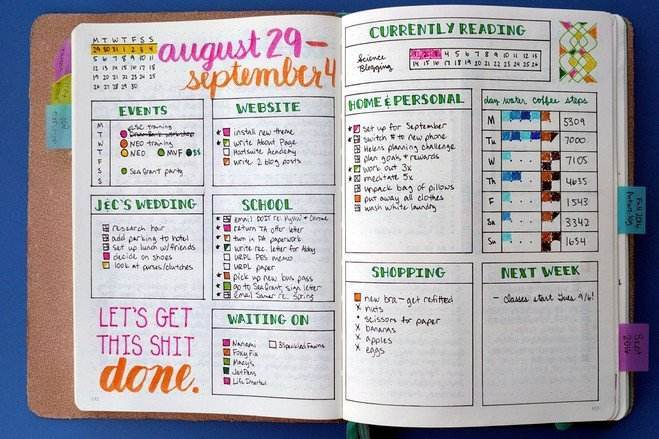 M T W T F S S
29 30 31 1 2 3 4
5 6 7 8 9 10 11
12 13 14 15 16 17 18
19 20 21 22 23 24 25
26 27 28 29 30
august 29 –
september 4
EVENTS
M
T
W
T
F
S
S
CSC training
NEO training
NEO MVF $$
Sea Grant party
WEBSITE
install new theme
write About Page
Hootsuite Academy
write 2 blog posts
J&C'S WEDDING
research hair
add parking to hotel
set up lunch w/friends
decide on shoes
look at purses/clutches
SCHOOL
email DOIT re:
return TA offer letter
turn in PA paperwork
write rec. letter for Abby
URPL PBS memo
URPL paper
pick up new bus pass
go to Sea Grant, sign letter
email Samer re: Spring
LET'S GET
THIS SHIT
done.
WAITING ON
Macy's
JetPens
CURRENTLY READING
Science
Blogging
1 2 3 4 5 6 7 8 9 10 11 12 13
14 15 16 17 18 19 20 21 22 23 24 25 26
HOME & PERSONAL
set up for September
switch # to new phone
Helens planning challenge
plan goals & rewards
work out 3x
meditate 5x
unpack bag of pillows
put away all clothes
wash white laundry
day water coffee steps
M 5309
Tu 7000
W 7105
Th 4635
F 1543
Sa 3342
Su 1654
SHOPPING
new bra – get refitted
nuts
scissors for paper
bananas
apples
eggs
NEXT WEEK
– Classes start Tues 9/6!
Sept
2016